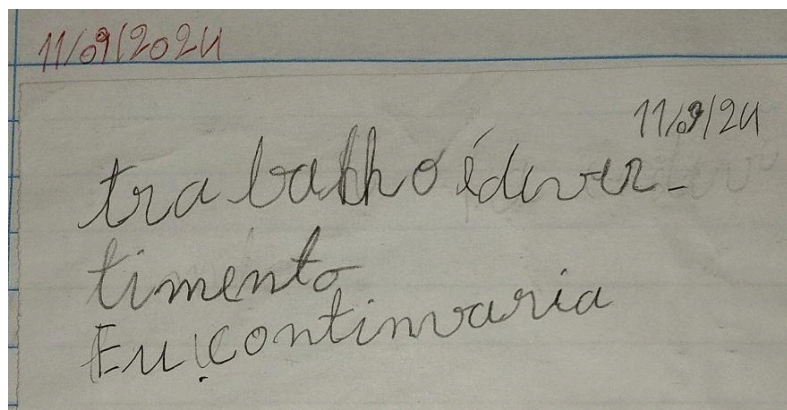 11/09/2024
11/09/24
trabalho é diver-
timento
Eu continuaria